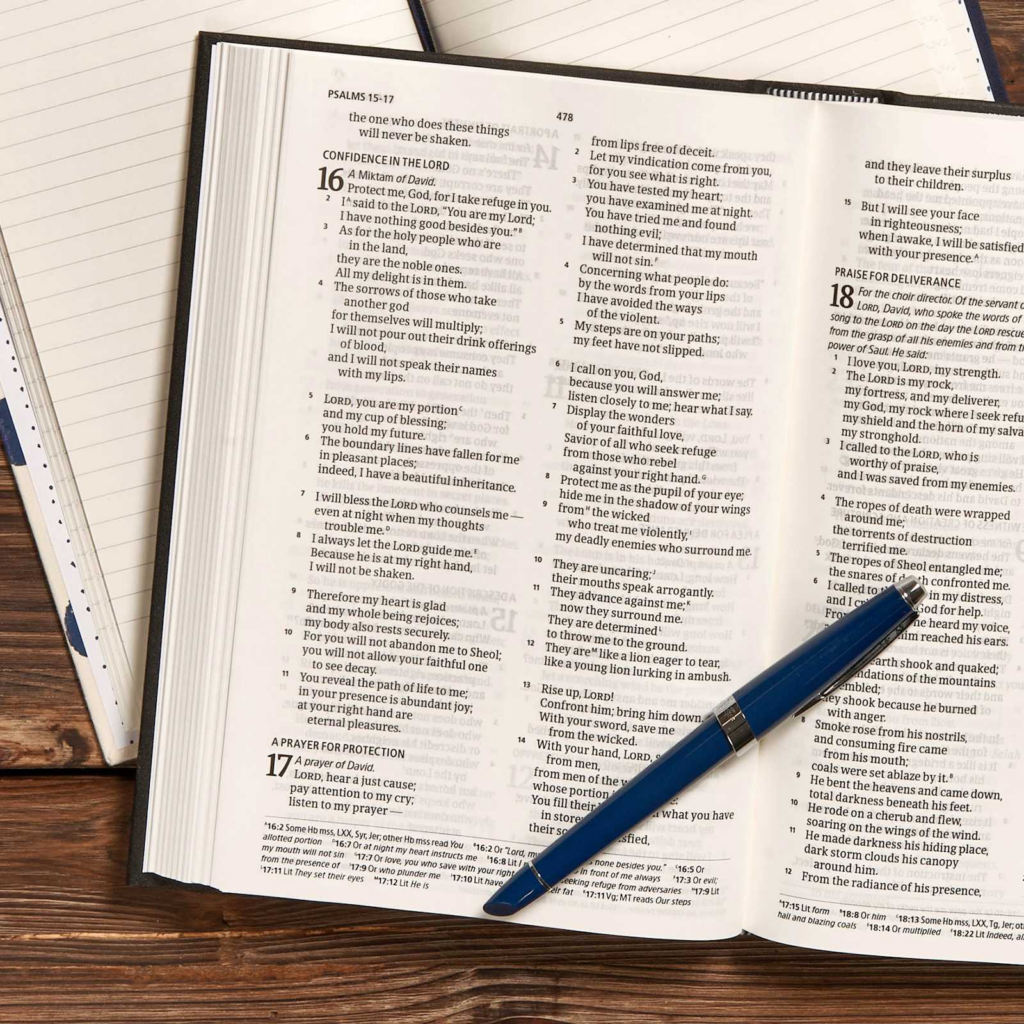 PSALMS 15-17
478
the one who does these things
will never be shaken.
CONFIDENCE IN THE LORD
16 A Miktam of David.
Protect me, God, for I take refuge in you.
2 Iᴬ said to the LORD, "You are my Lord;
I have nothing good besides you."ᴮ
3 As for the holy people who are
in the land,
they are the noble ones.
All my delight is in them.
4 The sorrows of those who take
another god
for themselves will multiply;
I will not pour out their drink offerings
of blood,
and I will not speak their names
with my lips.
5 LORD, you are my portionᶜ
and my cup of blessing;
you hold my future.
6 The boundary lines have fallen for me
in pleasant places;
indeed, I have a beautiful inheritance.
7 I will bless the LORD who counsels me —
even at night when my thoughts
trouble me.ᴰ
8 I always let the LORD guide me.ᴱ
Because he is at my right hand,
I will not be shaken.
9 Therefore my heart is glad
and my whole being rejoices;
my body also rests securely.
10 For you will not abandon me to Sheol;
you will not allow your faithful one
to see decay.
11 You reveal the path of life to me;
in your presence is abundant joy;
at your right hand are
eternal pleasures.
A PRAYER FOR PROTECTION
17 A prayer of David.
LORD, hear a just cause;
pay attention to my cry;
listen to my prayer —
from lips free of deceit.
2 Let my vindication come from you,
for you see what is right.
3 You have tested my heart;
you have examined me at night.
You have tried me and found
nothing evil;
I have determined that my mouth
will not sin.ᶠ
4 Concerning what people do:
by the words from your lips
I have avoided the ways
of the violent.
5 My steps are on your paths;
my feet have not slipped.
6 I call on you, God,
because you will answer me;
listen closely to me; hear what I say.
7 Display the wonders
of your faithful love,
Savior of all who seek refuge
from those who rebel
against your right hand.ᴳ
8 Protect me as the pupil of your eye;
hide me in the shadow of your wings
9 fromᴴ the wicked
who treat me violently,ᴵ
my deadly enemies who surround me.
10 They are uncaring;ᴶ
their mouths speak arrogantly.
11 They advance against me;ᴷ
now they surround me.
They are determinedᴸ
to throw me to the ground.
12 They areᴹ like a lion eager to tear,
like a young lion lurking in ambush.
13 Rise up, LORD!
Confront him; bring him down.
With your sword, save me
from the wicked.
14 With your hand, LORD,
from men,
from men of the
whose portion
You fill their what you have
in store
their satisfied,
ᴬ16:2 Some Hb mss, LXX, Syr, Jer; other Hb mss read You ᴮ16:2 Or "Lord, my none besides you." ᶜ16:5 Or
allotted portion ᴰ16:7 Or at night my heart instructs me ᴱ16:8 Lit in front of me always ᶠ17:3 Or evil;
my mouth will not sin ᴳ17:7 Or love, you save with your right seeking refuge from adversaries ᴴ17:9 Lit
from the presence of ᴵ17:9 Or who plunder me ᴶ17:10 Lit have their fat ᴷ17:11 Vg; MT reads Our steps
ᴸ17:11 Lit They set their eyes ᴹ17:12 Lit He is
and they leave their surplus
to their children.
15 But I will see your face
in righteousness;
when I awake, I will be satisfied
with your presence.ᴬ
PRAISE FOR DELIVERANCE
18 For the choir director. Of the servant
LORD, David, who spoke the words of
song to the LORD on the day the LORD
from the grasp of all his enemies and from
power of Saul. He said:
1 I love you, LORD, my strength.
2 The LORD is my rock,
my fortress, and my deliverer,
my God, my rock where I seek
my shield and the horn of my
my stronghold.
3 I called to the LORD, who is
worthy of praise,
and I was saved from my enemies.
4 The ropes of death were wrapped
around me;
the torrents of destruction
terrified me.
5 The ropes of Sheol entangled me;
the snares of death confronted me.
6 I called to in my distress,
and I God for help.
From he heard my voice,
him reached his ears.
earth shook and quaked;
of the mountains
they shook because he burned
with anger.
8 Smoke rose from his nostrils,
and consuming fire came
from his mouth;
coals were set ablaze by it.ᴮ
9 He bent the heavens and came down,
total darkness beneath his feet.
10 He rode on a cherub and flew,
soaring on the wings of the wind.
11 He made darkness his hiding place,
dark storm clouds his canopy
around him.
12 From the radiance of his presence,
ᴬ17:15 Lit form ᴮ18:8 Or him ᶜ18:13 Some Hb mss, LXX, Tg, Jer;
hail and blazing coals ᴰ18:14 Or multiplied ᴱ18:22 Lit Indeed,